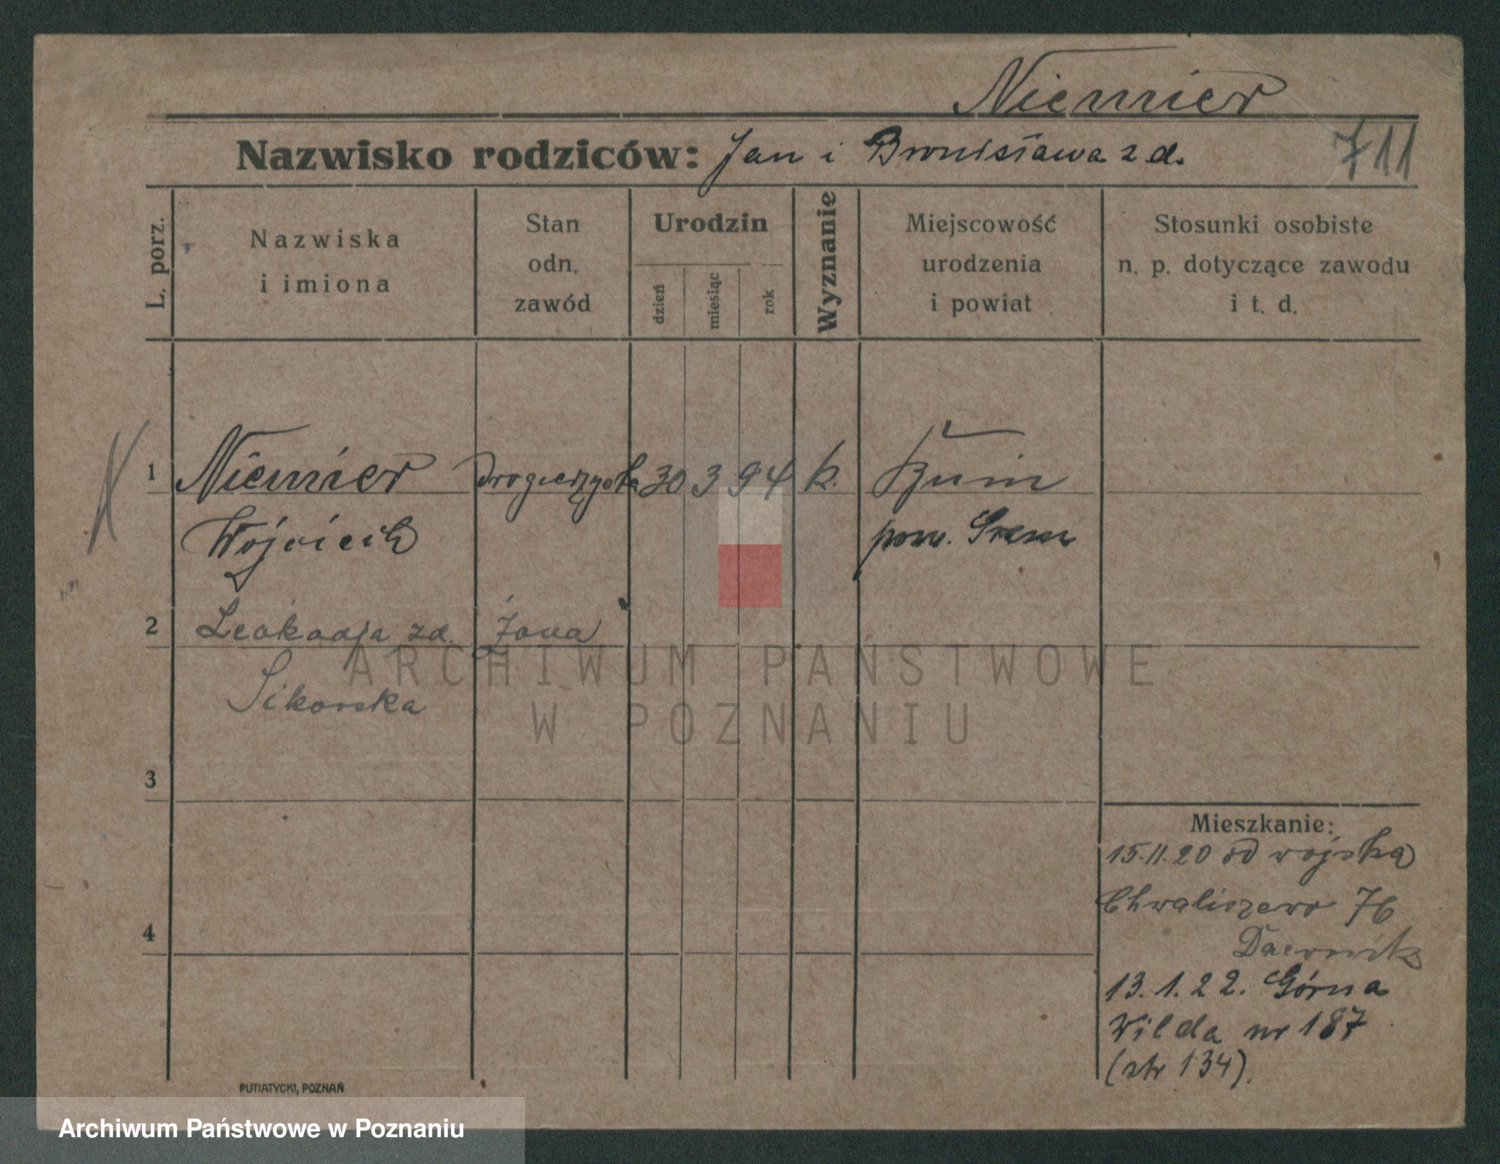 Niemier
Nazwisko rodziców: Jan i Bronisława z d.
711
L. porz.
Nazwiska
i imiona
Stan
odn.
zawód
Urodzin
dzień
miesiąc
rok
Wyznanie
Miejscowość
urodzenia
i powiat
Stosunki osobiste
n. p. dotyczące zawodu
i t. d.
1
Niemier
Wojciech
drogerzysta
30 3 94
k.
pow. Śrem
2
Leokadja zd.
Sikorska
żona
ARCHIWUM PAŃSTWOWE
W POZNANIU
3
4
Mieszkanie:
15.11.20 od wojska
Chwaliszewo 76
13.1.22. Górna
Wilda nr 187
(str 134).
PUTIATYCKI, POZNAŃ
Archiwum Państwowe w Poznaniu